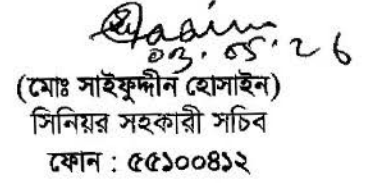 03.05.26
(মোঃ সাইফুদ্দীন হোসাইন)
সিনিয়র সহকারী সচিব
ফোন : ৫৫১০০৪১২